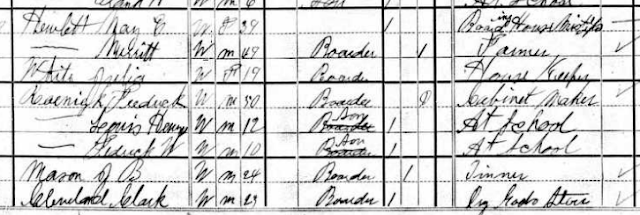 W m 6 At School
Hewlett Mary E W F 39 1 Board ing House
— Merritt W m 49 Boarder 1 Farmer
White Julia W F 19 Boarder House Keeper
Koenigk Fredrick W m 50 Boarder Cabinet Maker
— Louis Henry W m 12 Boarder Son 1 At School
— Fredrick W W m 10 Boarder Son 1 At School
Mason J B W m 24 Boarder 1 Tinner
Cleveland Clark W m 23 Boarder 1 Dry Goods Store